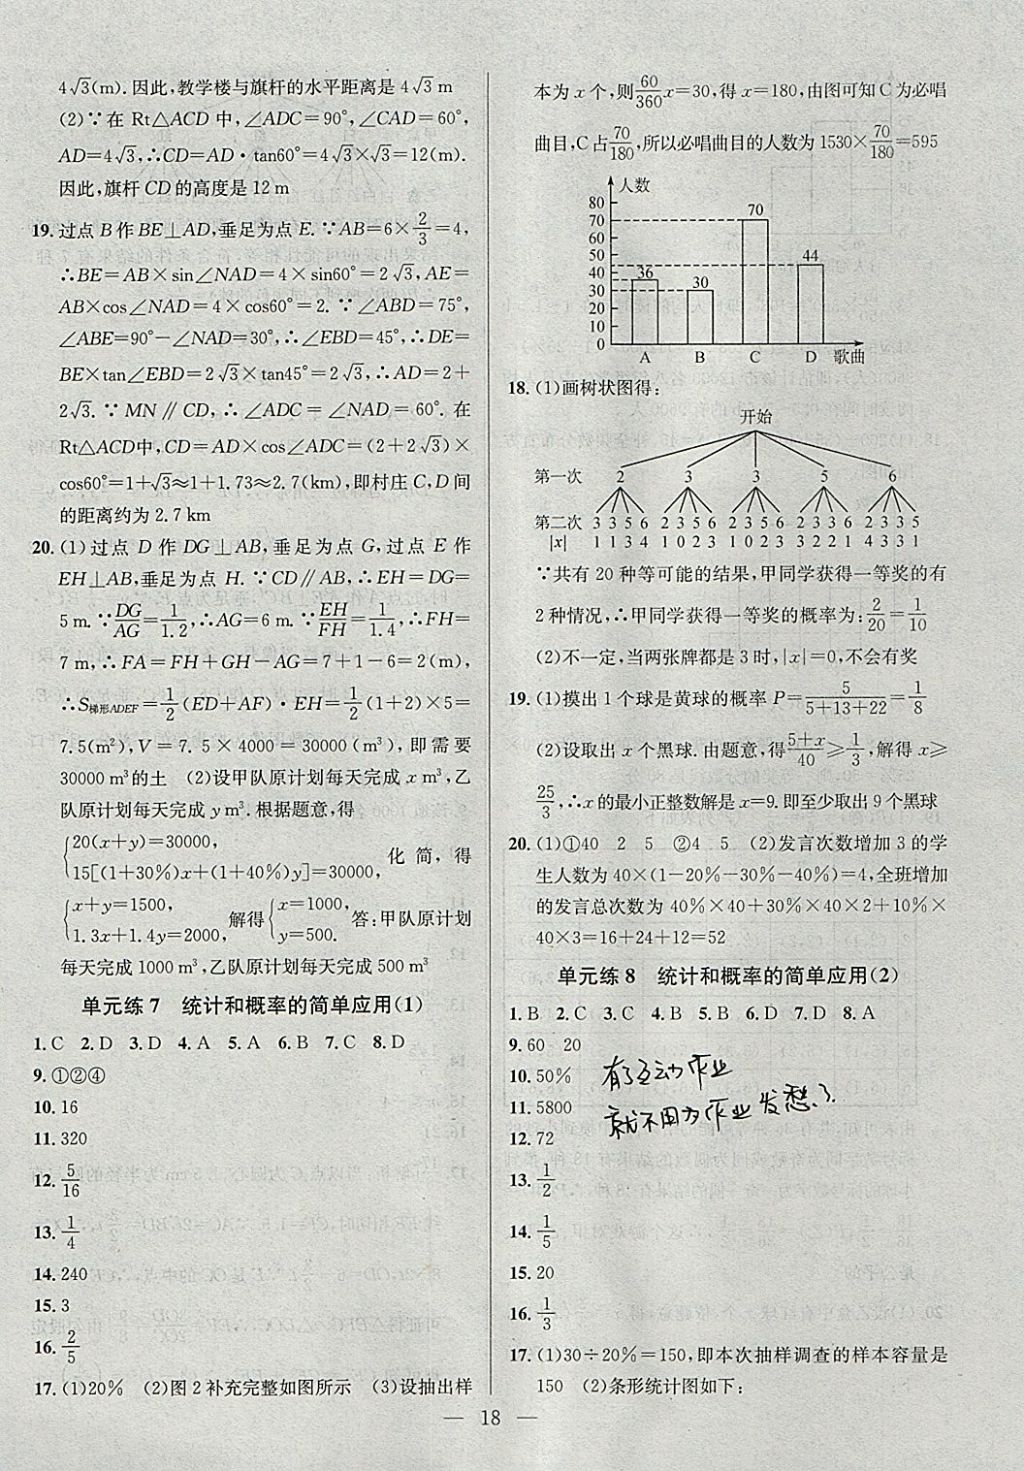 4√3(m).因此,教学楼与旗杆的水平距离是4√3 m
(2)∵在Rt△ACD中,∠ADC=90°,∠CAD=60°,
AD=4√3,∴CD=AD·tan60°=4√3×√3=12(m).
因此,旗杆CD的高度是12 m
19.过点B作BE⊥AD,垂足为点E.∵AB=6×2/3=4,
∴BE=AB×sin∠NAD=4×sin60°=2√3,AE=
AB×cos∠NAD=4×cos60°=2.∵∠ABD=75°,
∠ABE=90°-∠NAD=30°,∴∠EBD=45°,∴DE=
BE×tan∠EBD=2√3×tan45°=2√3,∴AD=2+
2√3.∵MN∥CD,∴∠ADC=∠NAD=60°.在
Rt△ACD中,CD=AD×cos∠ADC=(2+2√3)×
cos60°=1+√3≈1+1.73≈2.7(km),即村庄C,D间
的距离约为2.7 km
20.(1)过点D作DG⊥AB,垂足为点G,过点E作
EH⊥AB,垂足为点H.∵CD∥AB,∴EH=DG=
5 m.∵DG/AG=1/1.2,∴AG=6 m.∵EH/FH=1/1.4,∴FH=
7 m,∴FA=FH+GH-AG=7+1-6=2(m),
∴S梯形ADEF=1/2(ED+AF)·EH=1/2(1+2)×5=
7.5(m²),V=7.5×4000=30000(m³),即需要
30000 m³的土 (2)设甲队原计划每天完成x m³,乙
队原计划每天完成y m³.根据题意,得
{20(x+y)=30000,
15[(1+30%)x+(1+40%)y]=30000, 化简,得
{x+y=1500,
1.3x+1.4y=2000, 解得{x=1000,
y=500. 答:甲队原计划
每天完成1000 m³,乙队原计划每天完成500 m³
单元练7 统计和概率的简单应用(1)
1.C 2.D 3.D 4.A 5.A 6.B 7.C 8.D
9.①②④
10.16
11.320
12.5/16
13.1/4
14.240
15.3
16.2/5
17.(1)20% (2)图2补充完整如图所示 (3)设抽出样
本为x个,则60/360 x=30,得x=180,由图可知C为必唱
曲目,C占70/180,所以必唱曲目的人数为1530×70/180=595
人数
80
70
60
50
40
30
20
10
0
36
30
70
44
A B C D 歌曲
18.(1)画树状图得:
开始
第一次 2 3 3 5 6
第二次 3 3 5 6 2 3 5 6 2 3 5 6 2 3 3 6 2 3 3 5
|x| 1 1 3 4 1 0 2 3 1 0 2 3 3 2 2 1 4 3 3 1
∵共有20种等可能的结果,甲同学获得一等奖的有
2种情况,∴甲同学获得一等奖的概率为:2/20=1/10
(2)不一定,当两张牌都是3时,|x|=0,不会有奖
19.(1)摸出1个球是黄球的概率P=5/(5+13+22)=1/8
(2)设取出x个黑球.由题意,得(5+x)/40≥1/3,解得x≥
25/3,∴x的最小正整数解是x=9.即至少取出9个黑球
20.(1)①40 2 5 ②4 5 (2)发言次数增加3的学
生人数为40×(1-20%-30%-40%)=4,全班增加
的发言总次数为40%×40+30%×40×2+10%×
40×3=16+24+12=52
单元练8 统计和概率的简单应用(2)
1.B 2.C 3.C 4.B 5.B 6.D 7.D 8.A
9.60 20
10.50%
11.5800
12.72
有了互动作业
就不用为作业发愁了
13.1/2
14.1/5
15.20
16.1/3
17.(1)30÷20%=150,即本次抽样调查的样本容量是
150 (2)条形统计图如下:
— 18 —